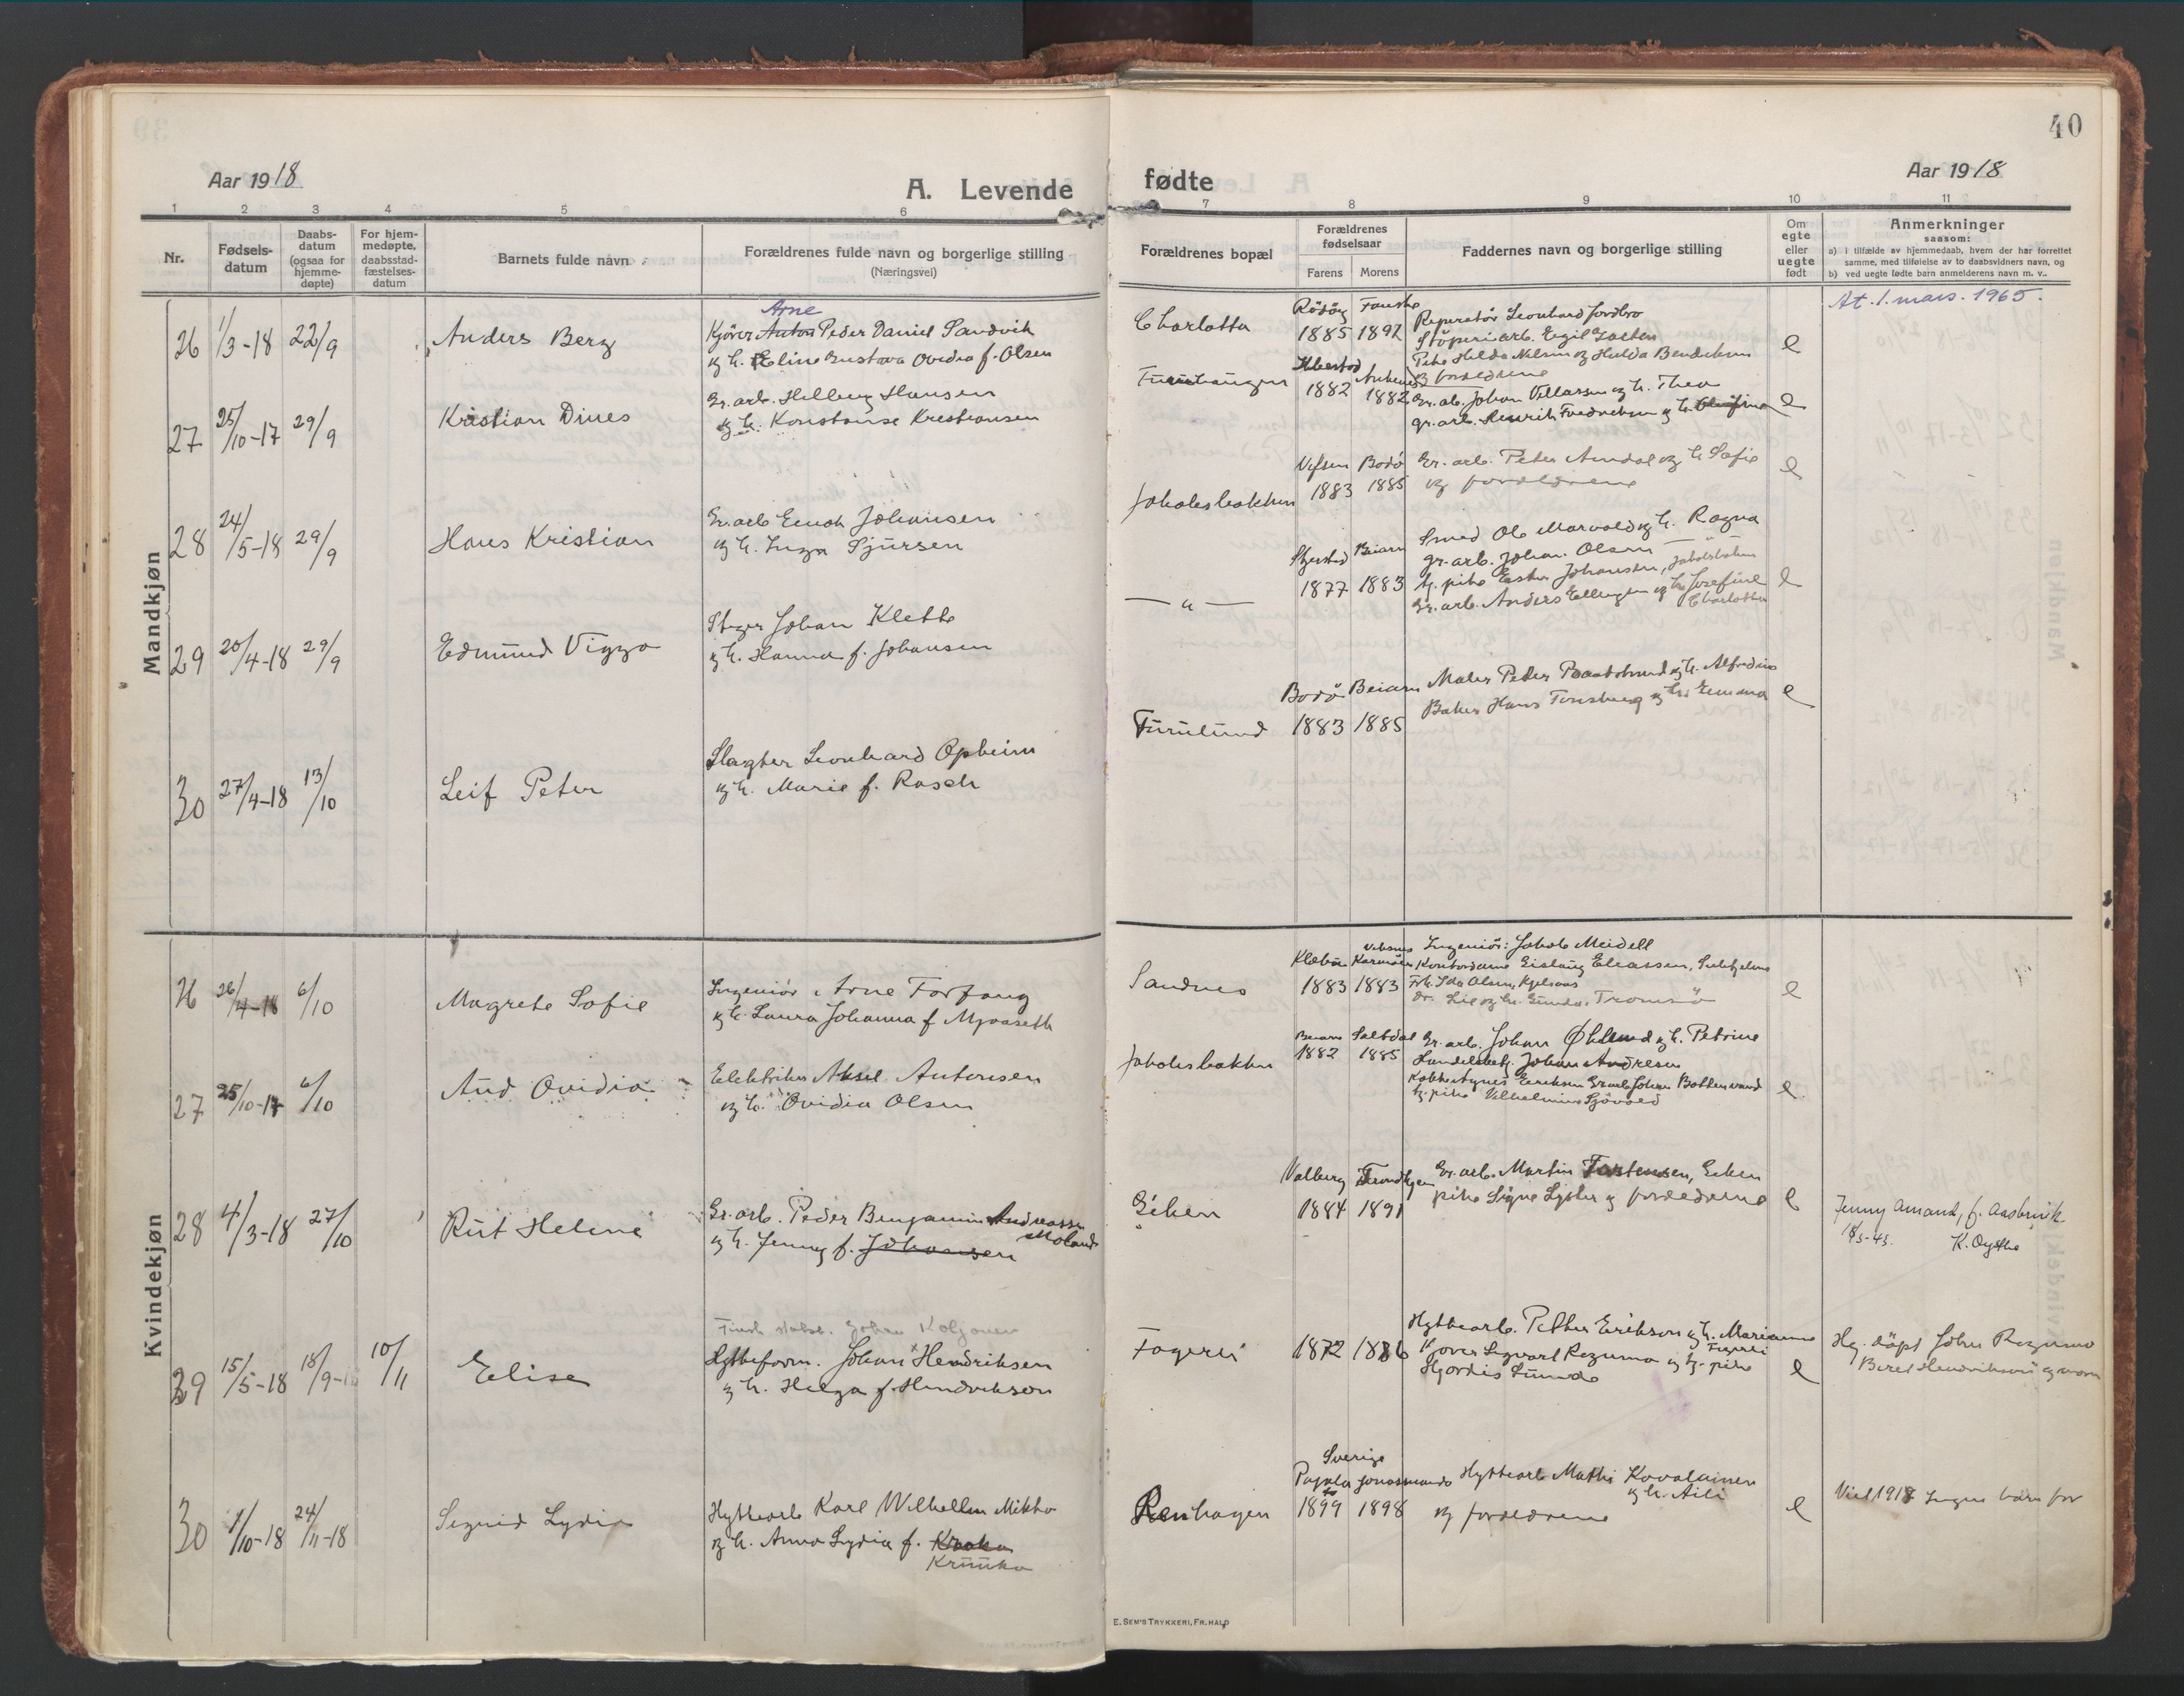 40
Aar 1918
A. Levende
fødte
Aar 1918
1 2 3 4 5 6
7 8 9 10 11
Nr.
Fødsels-
datum
Daabs-
datum
(ogsaa for
hjemme-
døpte)
For hjem-
medøpte,
daabsstad-
fæstelses-
datum
Barnets fulde navn
Forældrenes fulde navn og borgerlige stilling
(Næringsvei)
Forældrenes bopæl
Forældrenes
fødselsaar
Farens
Morens
Faddernes navn og borgerlige stilling
Om
egte
eller
uegte
født
Anmerkninger
saasom:
a) i tilfælde av hjemmedaab, hvem der har forrettet
samme, med tilføielse av to daabsvidners navn, og
b) ved uegte fødte barn anmelderens navn m. v..
Mandkjøn
26 1/3-18 22/9 Anders Berg
Arne
Kjører Anton Peder Daniel Sandvik
og h. Eline Gustava Ovidia f. Olsen
Charlotta
Rödöy Fauske
1885 1892
Reperatör Leonhard Jordbro
Pike Hilda Nilsen og Hulda Bendiksen
og forældrene
e
At. 1. mars. 1965.
27 25/10-17 29/9 Kristian Dines
Gr. arb. Hansen
og h. Konstanse Kristiansen
Furuhaugen
1882 1882
Gr. arb. Johan Villassen og h. Thea
gr. arb. Henrik Fredriksen og h.
e
28 24/5-18 29/9 Hans Kristian
Gr. arb Enok Johansen
og h. Inga Sjursen
Jakobsbakken
Vefsen Bodö
1883 1885
Gr. arb. Peter Amdal og h Sofie
og forældrene
e
29 20/4-18 29/9 Edmund Viggo
Stiger Johan Klette
og h. Hanna f. Johansen
— " —
Skjerstad Beiarn
1877 1883
Smed Ole Marvold og h. Ragna
gr. arb. Johan Olsen
tj. pike Ester Johansen, Jakobsbakken
Gr. arb. Anders Ellingsen og h. Josefine
Charlotta
e
30 27/4-18 13/10 Leif Peter
Slagter Leonhard Opheim
og h. Marie f. Rasch
Furulund
Bodö Beiarn
1883 1885
Maler Peter og h. Alfredine
Baker Hans Tonsberg og h. Emma
e
Kvindekjøn
26 26/4-18 6/10 Magrete Sofie
Ingeniör Arne Forfang
og h. Laura Johanna f Mjaaseth
Sandnes
Klæbu Karmöen
1883 1883
Ingeniör: Jakob Meidell
Kontordame Gislaug Eliassen, Sulitjelma
Frk. Ida Olsen,
Dr. Lie og h. Gunda. Tromsö
e
27 25/10-17 6/10 Aud Ovidia
Elektriker Aksel Antonsen
og h. Ovidia Olsen
Jakobsbakken
Beiarn Saltdal
1882 1885
Gr. arb. Johan Öklund og h. Petrine
Handelsbetj. Johan Andresen
Kokke Agnes Eriksen Gr arb Johan Bottenvand
tj. pike Vilhelmine Sjövold
e
28 4/3-18 27/10 Rut Helene
Gr. arb. Peder Benjamin Andreassen
Moland
og h. Jenny f. Johansen
Giken
Valberg Trondhjem
1884 1891
Gr. arb. Martin Torstensen, Giken
pike Signe Lyster og forældrene
e
Jenny Amand, f. Aasbrink
18/5-43. K. Oythe
29 15/5-18 18/9-18 10/11 Elise
Finsk statsb. Johan Koljonen
Hytteform. Johan Hendriksen
og h. Helga f. Hendrikson
Fagerli
1872 1886
Hyttearb. Petter Erikson og h. Marianne
Fagerli
Kjører Sigvart Rezuma og tj. pike
Hjordis Sunde
e
Hj. döpt John Rezuma
Beret Hendrikson og mor
30 1/10-18 24/11-18 Signid Lydia
Hyttearb Karl Wilhelm Mikko
og h. Anna Lydia f.
Kruuka
Renhagen
Sverige
Pajala Junosuando
1899 1898
Hyttearb Mathi Kovalainen
og h. Aili
og forældrene
e
Viel 1918 Ingen barn før
E. SEM'S TRYKKERI, FR.HALD